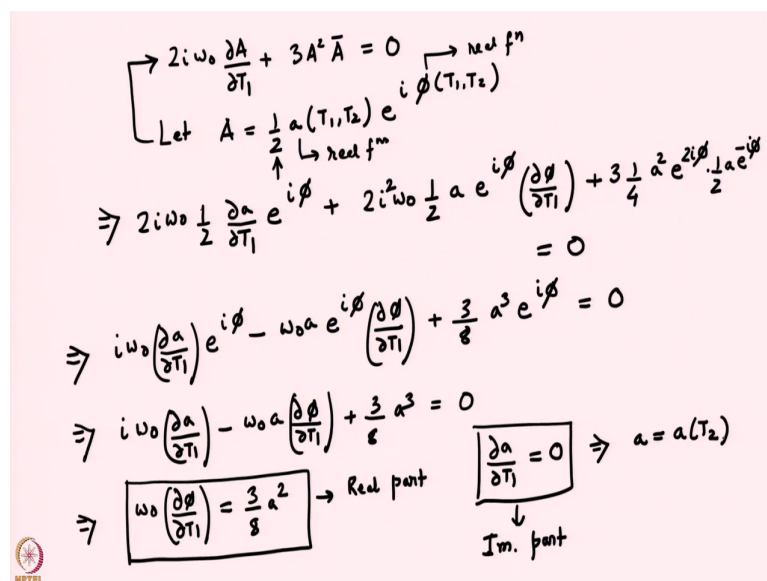 2iω₀ ∂A/∂T₁ + 3A² Ā = 0
→ real fⁿ
Let A = 1/2 a(T₁,T₂) e^{iφ(T₁,T₂)}
↳ real fⁿ
⇒ 2iω₀ 1/2 ∂a/∂T₁ e^{iφ} + 2i²ω₀ 1/2 a e^{iφ} (∂φ/∂T₁) + 3 1/4 a² e^{2iφ} · 1/2 a e^{-iφ}
= 0
⇒ iω₀ (∂a/∂T₁) e^{iφ} − ω₀a e^{iφ} (∂φ/∂T₁) + 3/8 a³ e^{iφ} = 0
⇒ iω₀ (∂a/∂T₁) − ω₀a (∂φ/∂T₁) + 3/8 a³ = 0
∂a/∂T₁ = 0 ⇒ a = a(T₂)
⇒ ω₀ (∂φ/∂T₁) = 3/8 a² → Real part
Im. part
NPTEL